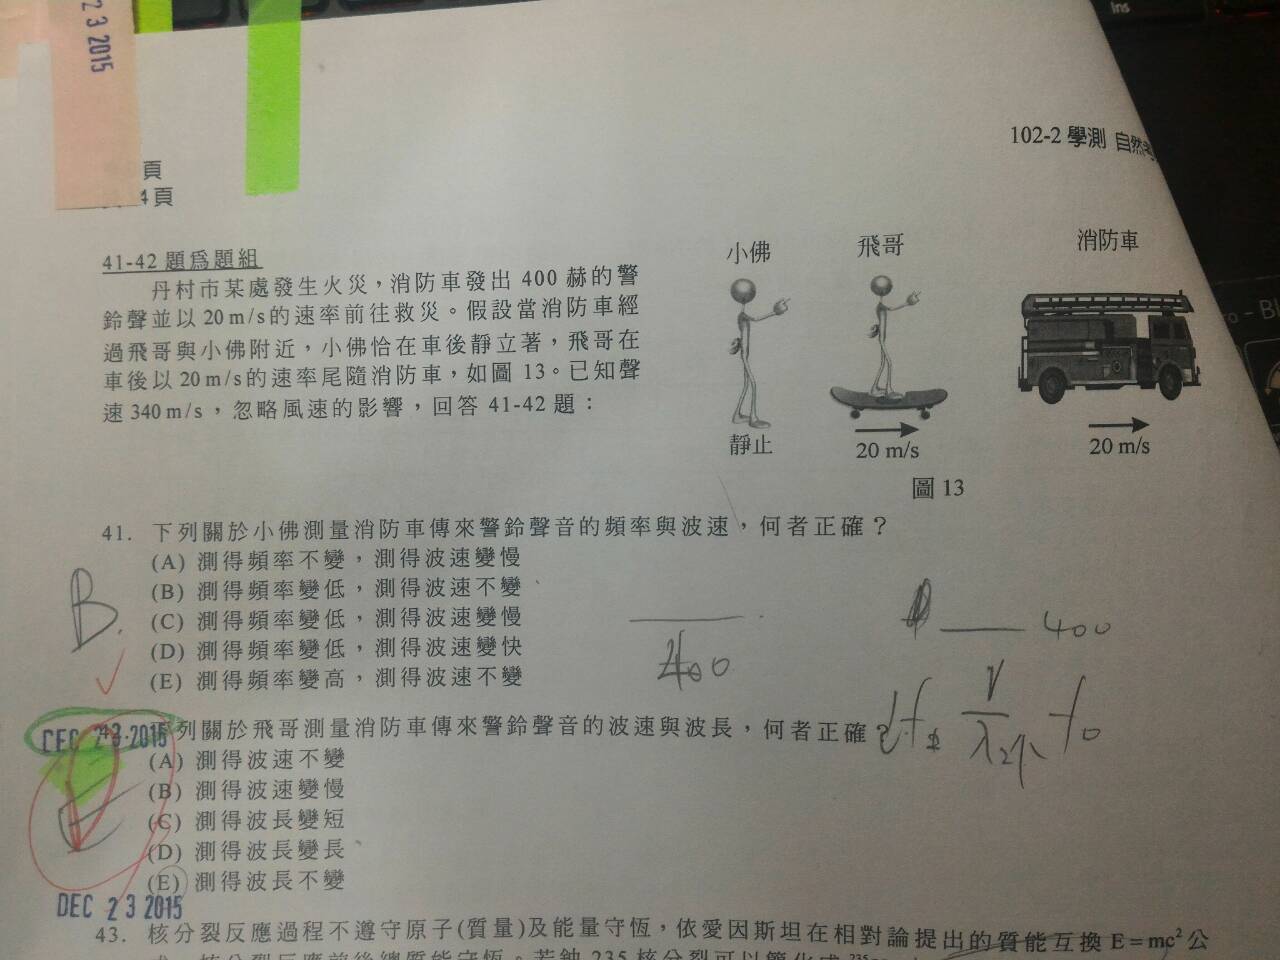 2 3 2015
Ins
102-2 學測 自然考
頁
4頁
41-42 題為題組
丹村市某處發生火災，消防車發出 400 赫的警
鈴聲並以 20 m/s 的速率前往救災。假設當消防車經
過飛哥與小佛附近，小佛恰在車後靜立著，飛哥在
車後以 20 m/s 的速率尾隨消防車，如圖 13。已知聲
速 340 m/s，忽略風速的影響，回答 41-42 題：
小佛
飛哥
消防車
靜止
20 m/s
20 m/s
圖 13
41. 下列關於小佛測量消防車傳來警鈴聲音的頻率與波速，何者正確？
(A) 測得頻率不變，測得波速變慢
(B) 測得頻率變低，測得波速不變
(C) 測得頻率變低，測得波速變慢
(D) 測得頻率變低，測得波速變快
(E) 測得頻率變高，測得波速不變
B.
400
400
下列關於飛哥測量消防車傳來警鈴聲音的波速與波長，何者正確？
DEC 23 2015
(A) 測得波速不變
(B) 測得波速變慢
(C) 測得波長變短
(D) 測得波長變長
(E) 測得波長不變
DEC 23 2015
43. 核分裂反應過程不遵守原子(質量)及能量守恆，依愛因斯坦在相對論提出的質能互換 E = mc² 公